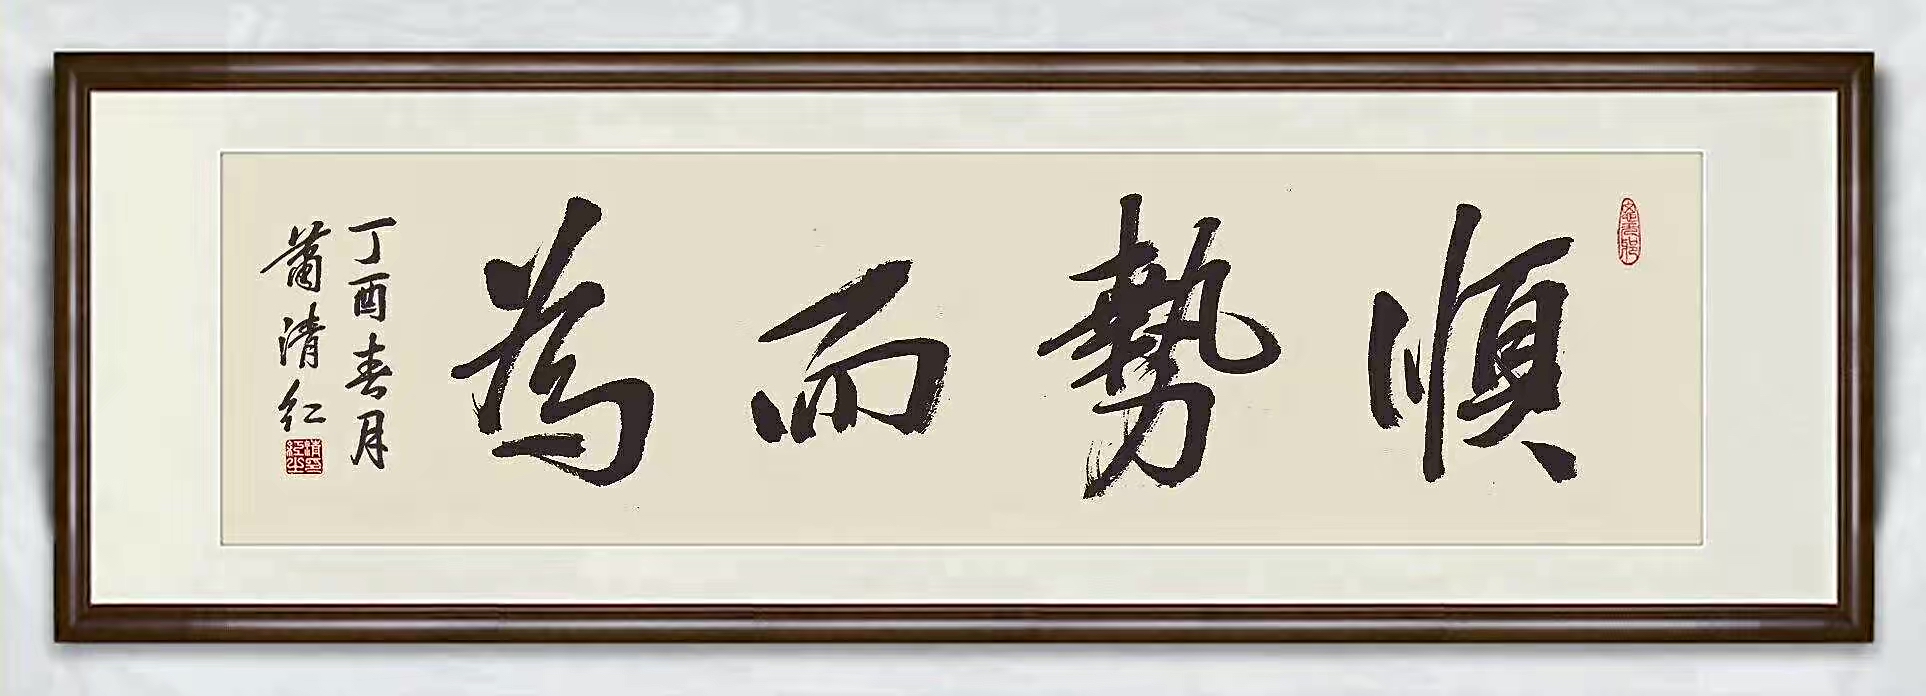 順勢而為
丁酉春月
蕭清红